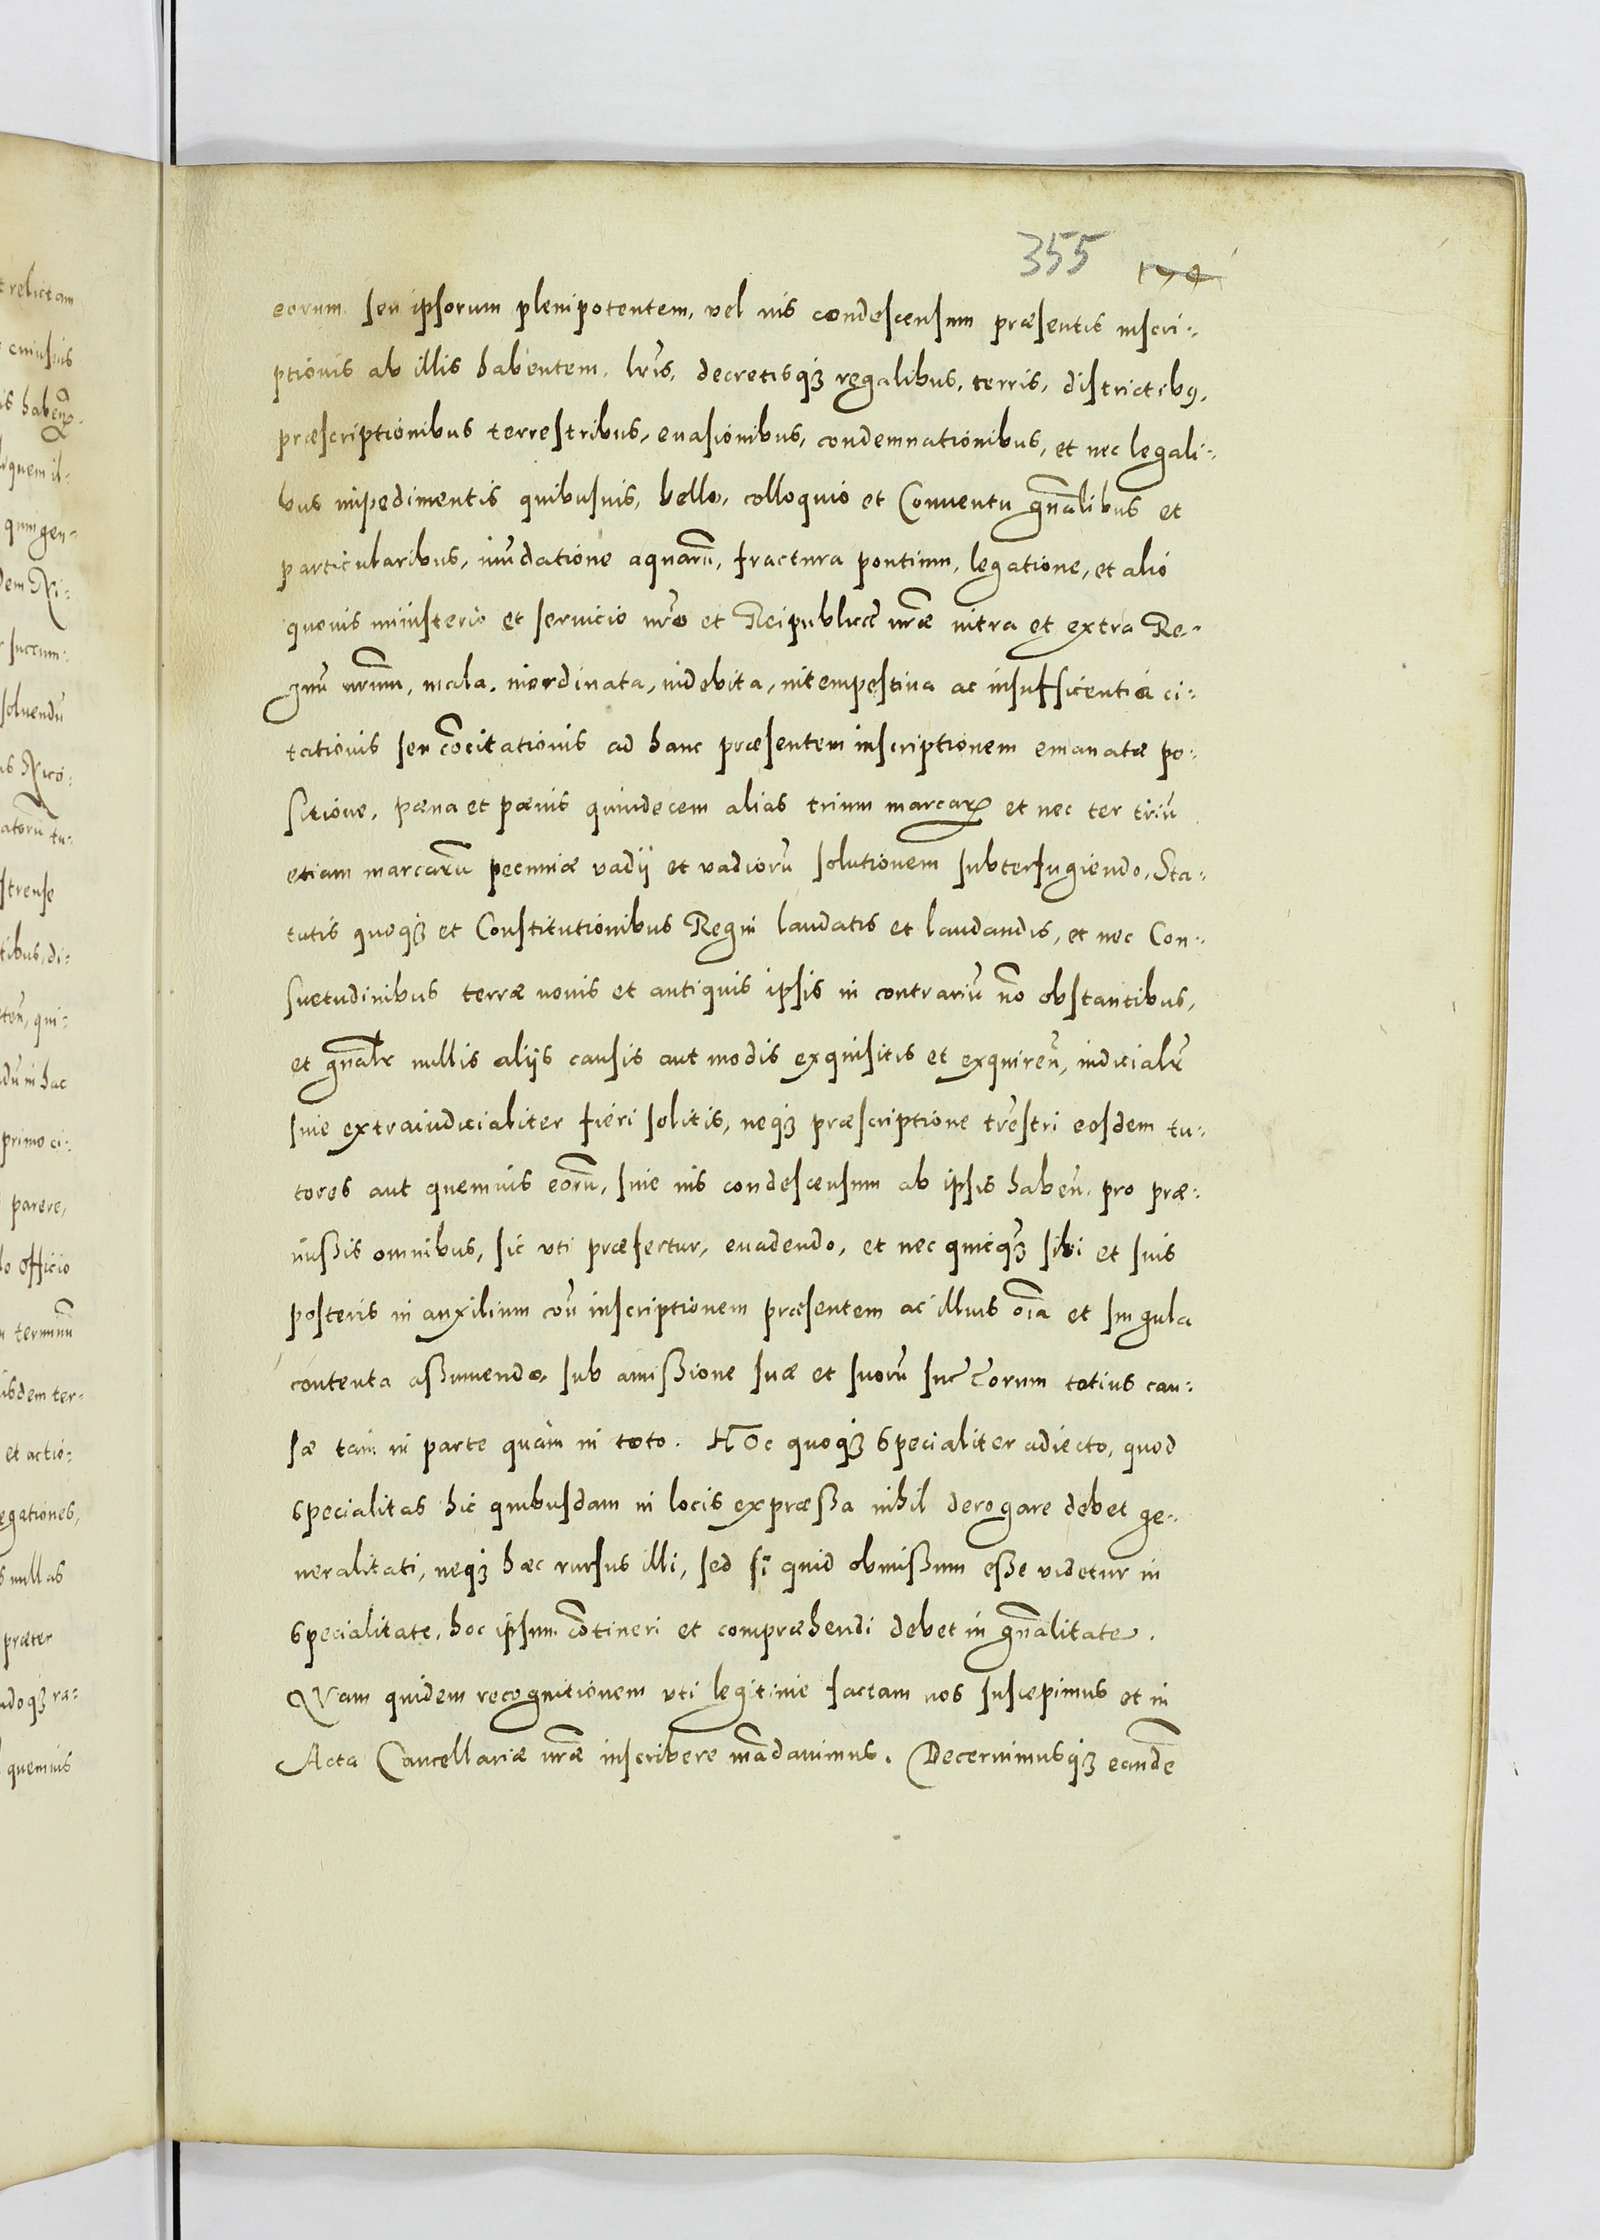 355
eorum seu ipsorum plenipotentem, vel ius condescensum præsentis inscri-
ptionis ab illis habentem, lris, decretisq3 regalibus, terris, districtib9,
præscriptionibus terrestribus, euasionibus, condemnationibus, et nec legali-
bus impedimentis quibusuis, bello, colloquio et Conuentu gñalibus et
particularibus, inũdatione aquarũ, fractura pontium, legatione, et alio
quouis ministerio et seruicio nrõ et Reipublicæ nrãe intra et extra Re-
gnũ nrũm, mala, inordinata, indebita, intempestiua ac insufficientia ci-
tationis seu cõcitationis ad hanc præsentem inscriptionem emanatæ po-
sitione, pæna et pænis quindecem alias trium marcarꝝ et nec ter triũ
etiam marcarũ pecuniæ vadij et vadiorũ solutionem subterfugiendo, Sta-
tutis quoq3 et Constitutionibus Regni laudatis et laudandis, et nec Con-
suetudinibus terræ nouis et antiquis ipsis in contrariũ nõ obstantibus,
et gñalr nullis aliis causis aut modis exquisitis et exquireñ, iudicialr
siue extraiudicialiter fieri solitis, neq3 præscriptione trẽstri eosdem tu-
tores aut quemuis eorũ, siue ius condescensum ab ipsis habeñ, pro præ-
mißis omnibus, sic vti præfertur, euadendo, et nec quicq̃3 sibi et suis
posteris in auxilium coñ inscriptionem præsentem ac illius oĩa et singula
contenta aßumendo, sub amißione suæ et suorũ succẽorum totius cau-
sæ tam in parte quàm in toto. HOc quoq3 specialiter adiecto, quod
specialitas hic quibusdam in locis expræßa nihil derogare debet ge-
neralitati, neq3 hæc rursus illi, sed si quid obmißum eße videtur in
specialitate, hoc ipsum cõtineri et compræhendi debet in gñalitate.
QVam quidem recognitionem vti legitime factam nos suscepimus et in
Acta Cancellariæ nrãe inscribere mãdauimus. Decernimusq3 eandẽ